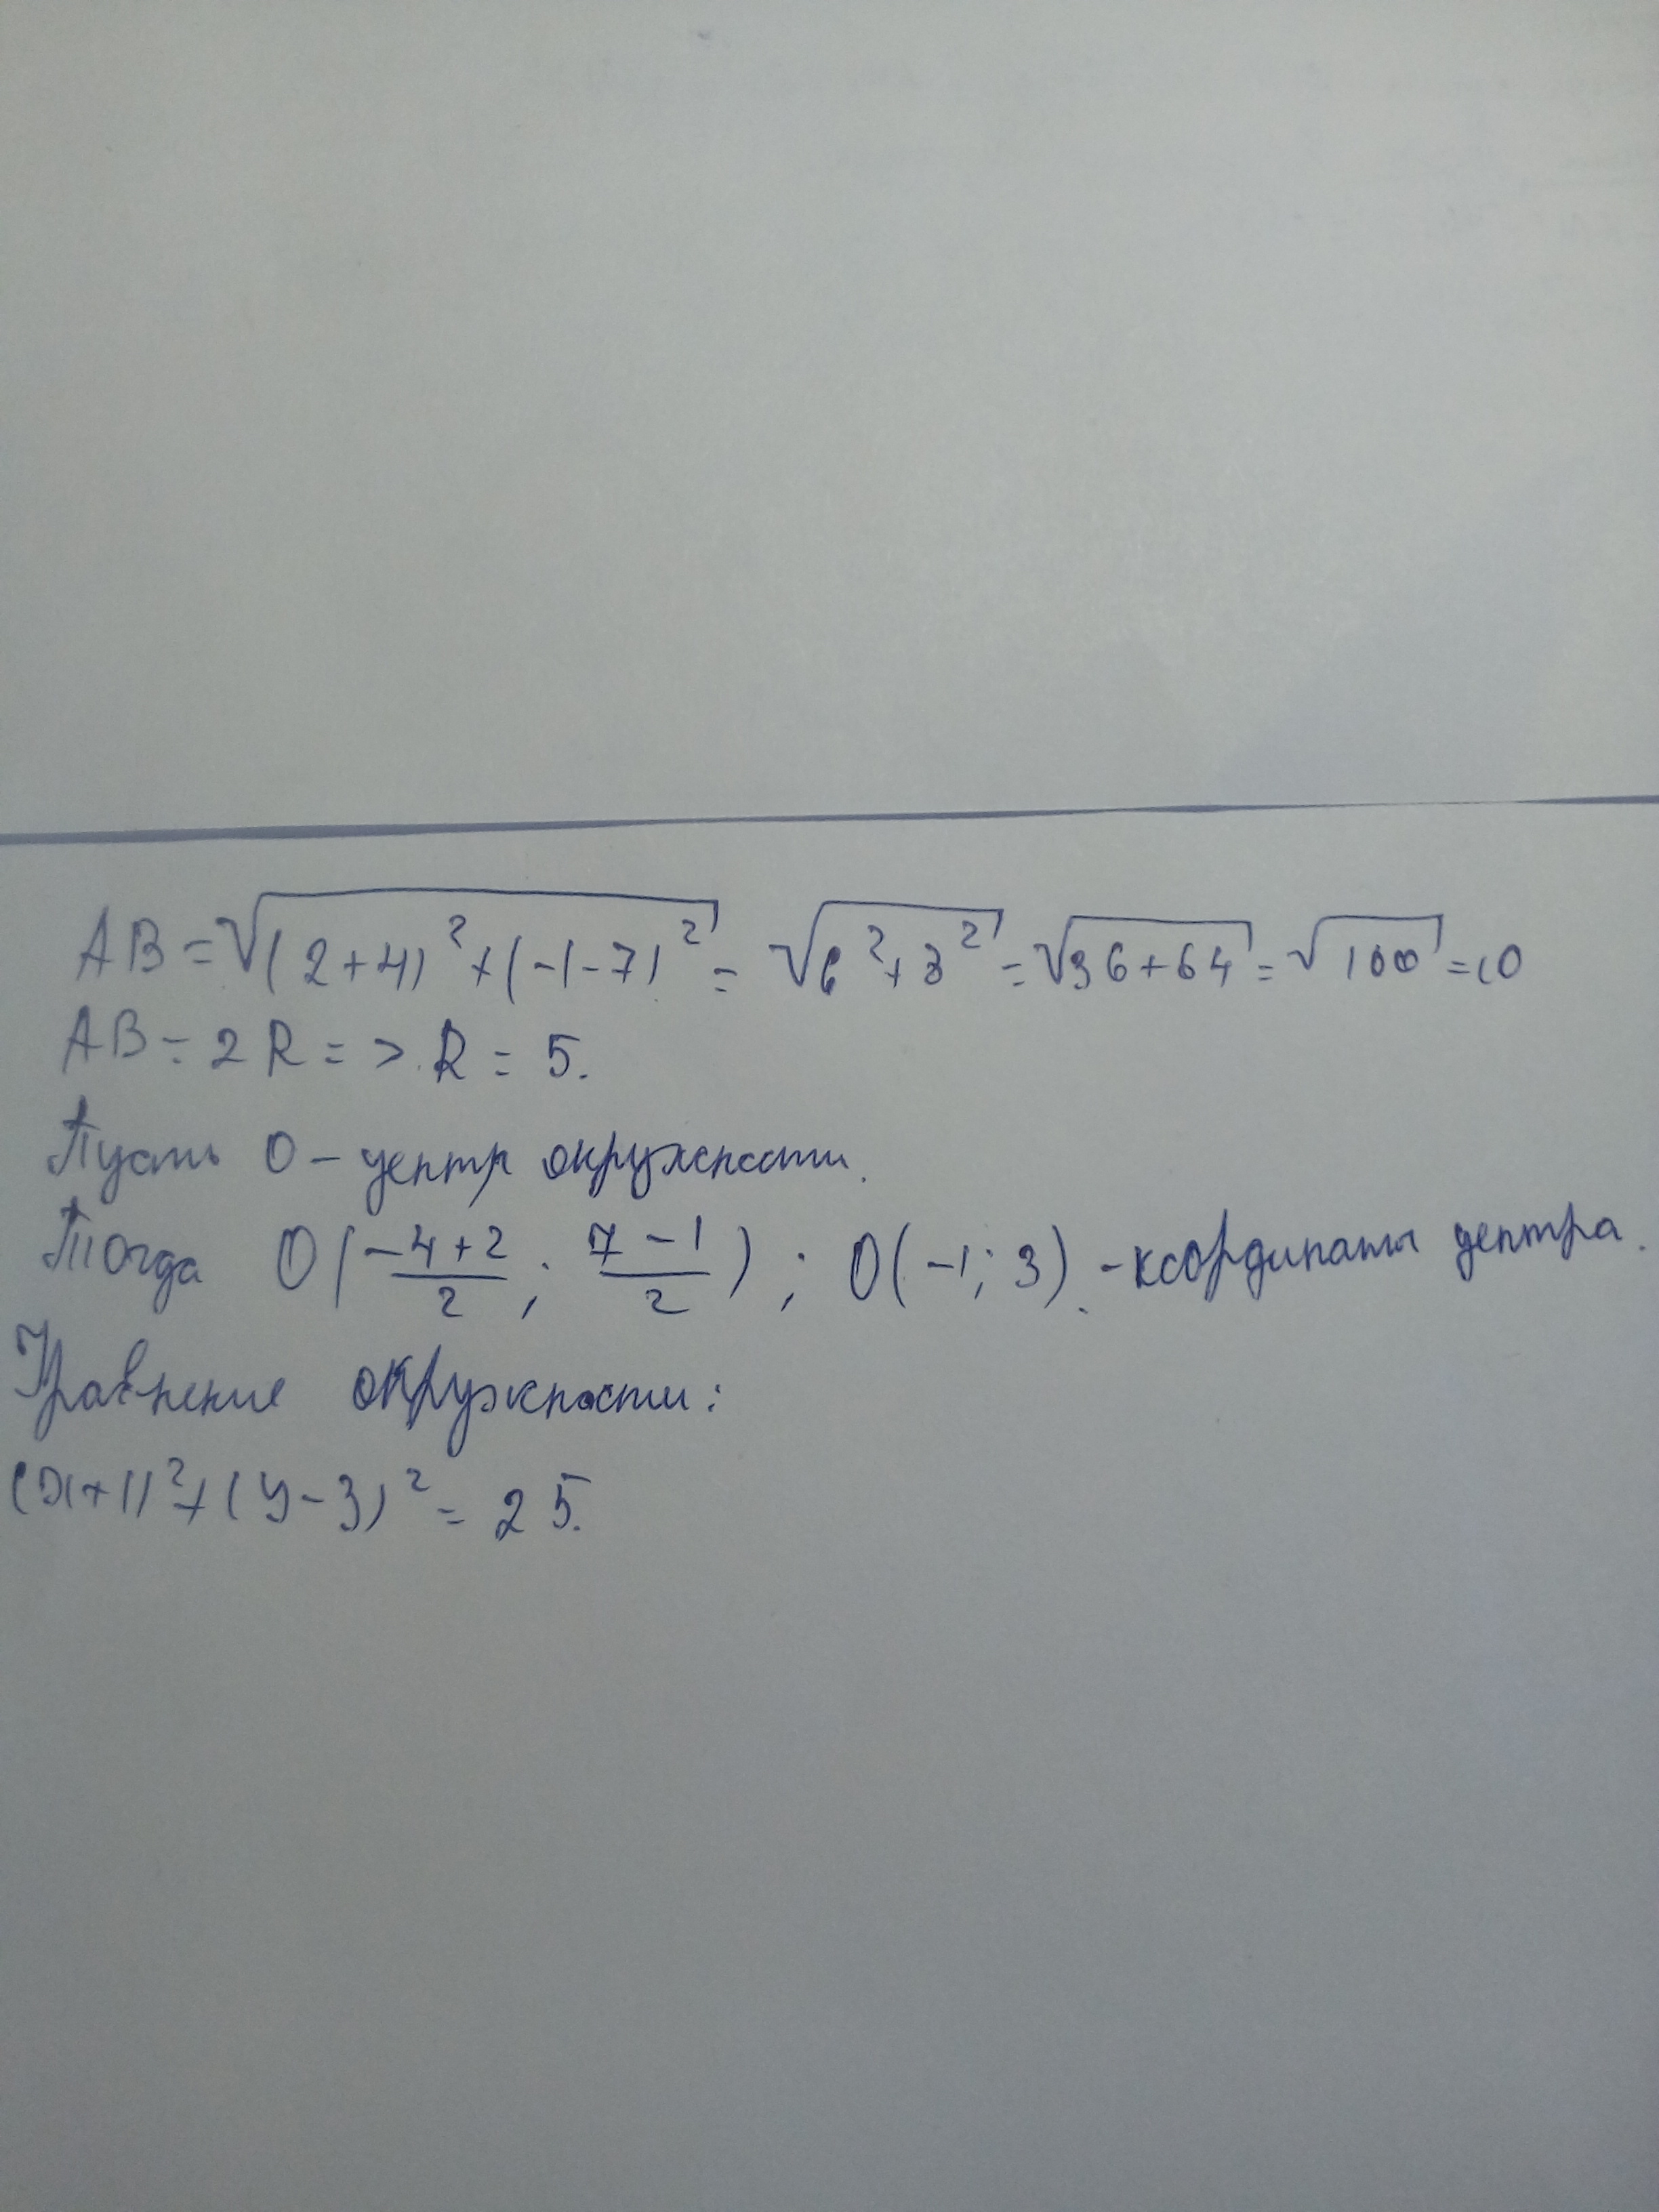 AB = √((2+4)² + (-1-7)²) = √(6²+8²) = √(36+64) = √100 = 10
AB = 2R => R = 5.
Пусть O – центр окружности.
Тогда O((-4+2)/2 ; (7-1)/2) ; O(-1; 3). - координаты центра.
Уравнение окружности:
(x+1)² + (y-3)² = 25.